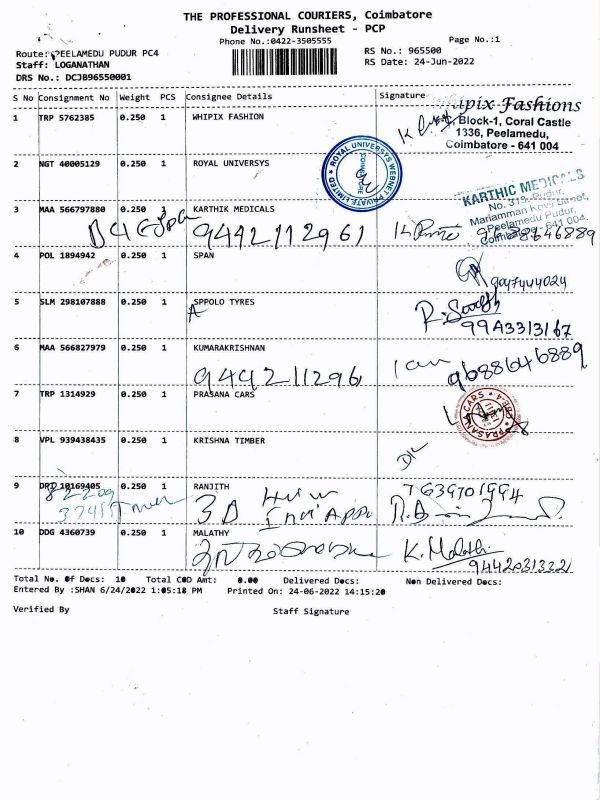 THE PROFESSIONAL COURIERS, Coimbatore
Delivery Runsheet - PCP
Phone No.:0422-3505555
Page No.:1
Route: PEELAMEDU PUDUR PC4
RS No.: 965500
Staff: LOGANATHAN
RS Date: 24-Jun-2022
DRS No.: DCJB96550001
S No Consignment No Weight PCS Consignee Details Signature
Whipix Fashions
1 TRP 5762385 0.250 1 WHIPIX FASHION
Block-1, Coral Castle
1336, Peelamedu,
Coimbatore - 641 004
2 NGT 40005129 0.250 1 ROYAL UNIVERSYS
ROYAL UNIVERSYS WEBNET PRIVATE LIMITED
COIMBATORE
KARTHIC MEDICALS
No. 319, Pudur,
Mariamman Kovil Street,
Peelamedu Pudur,
Coimbatore - 641 004.
3 MAA 566797880 0.250 1 KARTHIK MEDICALS
9442112961 9688646889
4 POL 1894942 0.250 1 SPAN
9047444024
5 SLM 298107888 0.250 1 SPPOLO TYRES
A
9943313167
6 MAA 566827979 0.250 1 KUMARAKRISHNAN
944211296 9688646889
7 TRP 1314929 0.250 1 PRASANA CARS
PRASANA CARS
8 VPL 939438435 0.250 1 KRISHNA TIMBER
9 DRD 10169405 0.250 1 RANJITH
7639701994
10 DDG 4360739 0.250 1 MALATHY
K. Malathi
9442031322
Total No. Of Docs: 10 Total COD Amt: 0.00 Delivered Docs: Non Delivered Docs:
Entered By :SHAN 6/24/2022 1:05:18 PM Printed On: 24-06-2022 14:15:20
Verified By Staff Signature